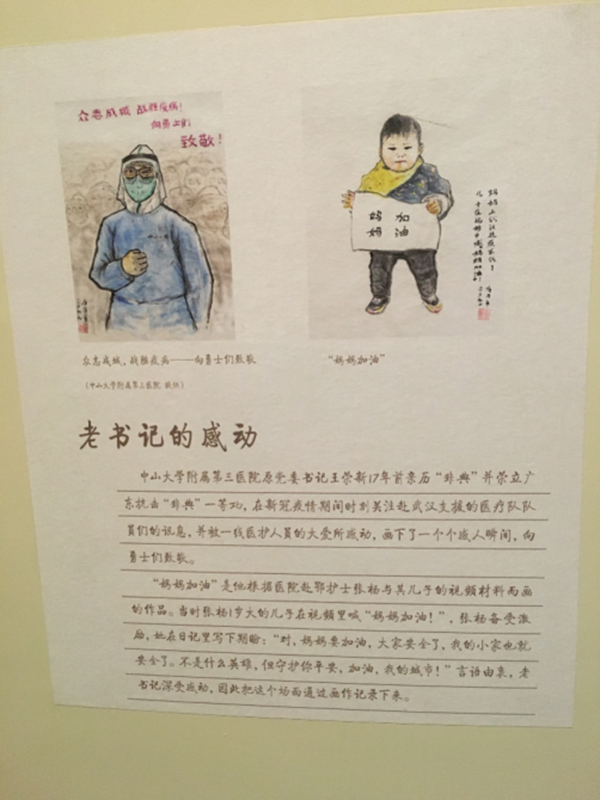 众志成城 战胜疫病!
向勇士们
致敬!
妈妈 加油
众志成城,战胜疫病——向勇士们致敬
(中山大学附属第三医院 提供)
“妈妈加油”
老书记的感动
中山大学附属第三医院原党委书记王荣新17年前亲历“非典”并荣立广
东抗击“非典”一等功,在新冠疫情期间时刻关注赴武汉支援的医疗队队
员们的讯息,并被一线医护人员的大爱所感动,画下了一个个感人瞬间,向
勇士们致敬。
“妈妈加油”是他根据医院赴鄂护士张杨与其儿子的视频材料而画
的作品。当时张杨1岁大的儿子在视频里喊“妈妈加油!”,张杨备受激
励,她在日记里写下期盼:“对,妈妈要加油,大家安全了,我的小家也就
安全了。不是什么英雄,但守护你平安,加油,我的城市!”言语由衷,老
书记深受感动,因此把这个场面通过画作记录下来。